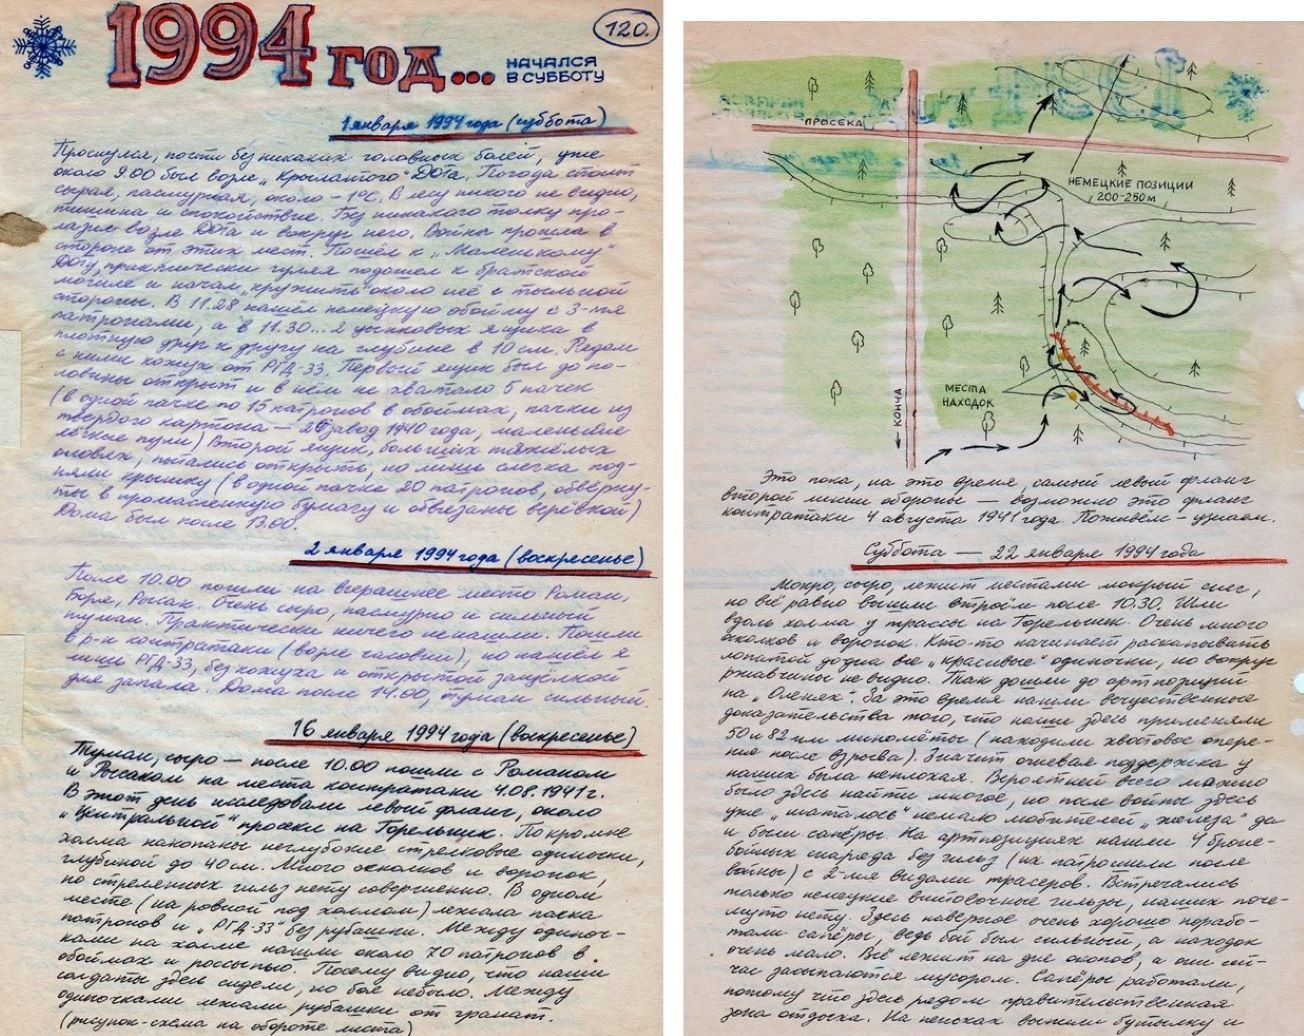 120.
1994 год...
НАЧАЛСЯ
В СУББОТУ
1 января 1994 года (суббота)
Проснулся, почти без никаких головных болей, уже
около 9.00 был возле „Крылатого" ДОТа. Погода стоит
сырая, пасмурная, около -1°С. В лесу никого не видно,
тишина и спокойствие. Без никакого толку про-
лазил возле ДОТа и вокруг него. Войны прошла в
стороне от этих мест. Пошёл к „Маленькому"
ДОТу, практически гуляя подошел к братской
могиле и начал „кружить" около неё с тыльной
стороны. В 11.28 нашёл немецкую обойму с 3-мя
патронами, а в 11.30... 2 цинковых ящика в
плотную друг к другу на глубине в 10 см. Рядом
с ними кожух от РГД-33. Первый ящик был до по-
ловины открыт и в нём не хватало 5 пачек
(в одной пачке по 15 патронов в обоймах, пачки из
твердого картона — завод 1940 года, маленькие
лёгкие пули) Второй ящик, больших тяжёлых
пытались открыть, но лишь слегка под-
няли крышку (в одной пачке 20 патронов, обвёрну-
ты в промасленную бумагу и обвязаны верёвкой)
Дома был после 13.00.
2 января 1994 года (воскресенье)
После 10.00 пошли на вчерашнее место Роман,
Боря, Рысак. Очень сыро, пасмурно и сильный
туман. Практически ничего не нашли. Пошли
в р-н контратаки (возле часовни), но нашёл я
лиши РГД-33, без кожуха и открытой защёлкой
для запала. Дома после 14.00, туман сильный.
16 января 1994 года (воскресенье)
Туман, сыро — после 10.00 пошли с Романом
и Рысаком на места контратаки 4.08.1941 г.
В этот день исследовали левый фланг, около
„Центральной" просеки на Горельщик. По кромке
холма накопаны неглубокие стрелковые одиночки,
глубиной до 40 см. Много осколков и воронок,
но стреляных гильз нету совершенно. В одном
месте (на ровной под холмом) лежала пачка
патронов и „РГД-33" без рубашки. Между одиноч-
ками на холме нашли около 70 патронов в
обоймах и россыпью. Посему видно, что наши
солдаты здесь сидели, но боя небыло. Между
одиночками лежали рубашки от гранат.
(рисунок-схема на обороте листа)
ПРОСЕКА
НЕМЕЦКИЕ ПОЗИЦИИ
200-250 м
МЕСТА
НАХОДОК
← КОНЧА
Это пока, на это время, самый левый фланг
второй линии обороны — возможно это фланг
контратаки 4 августа 1941 года. Поживём - узнаем.
Суббота — 22 января 1994 года
Мокро, сыро, лежит местами мокрый снег,
но всё равно вышли втроём после 10.30. Шли
вдоль холма у трассы на Горельщик. Очень много
осколков и воронок. Кто-то начинает раскапывать
лопатой до дна все „красивые" одиночки, но вокруг
ржавчины не видно. Так дошли до артпозиций
на „Оленях". За это время нашли вещественные
доказательства того, что наши здесь применяли
50 и 82-мм миномёты (находили хвостовое опере-
ние после взрыва). Значит огневая поддержка у
наших была неплохая. Вероятней всего можно
было здесь найти многое, но после войны здесь
уже „шаталось" немало любителей „железа" да
и были сапёры. На артпозициях нашли 4 броне-
бойных снаряда без гильз (их патрошили после
войны) с 2-мя видами трасеров. Встречались
только немецкие винтовочные гильзы, наших поче-
му то нету. Здесь наверное очень хорошо порабо-
тали сапёры, ведь бой был сильный, а находок
очень мало. Всё лежит на дне окопов, а они сей-
час засыпаются мусором. Сапёры работали,
потому что здесь рядом правительственная
зона отдыха. На поисках выпили бутылку и